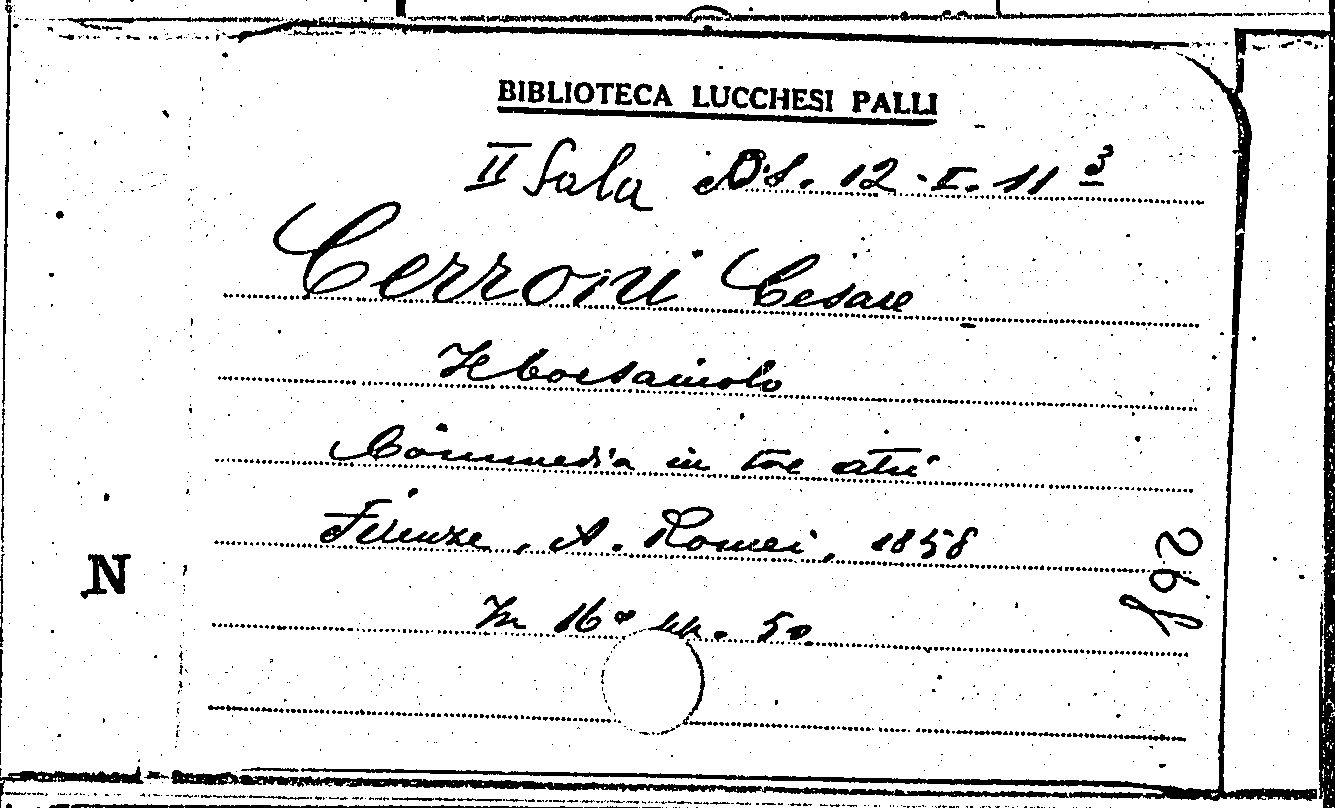 BIBLIOTECA LUCCHESI PALLI
II Sala DS. 12-I. 11 3
Cerroni Cesare
Il borsaiolo
Commedia in tre atti
Firenze, A. Romei, 1858
In 16° pp. 50.
N